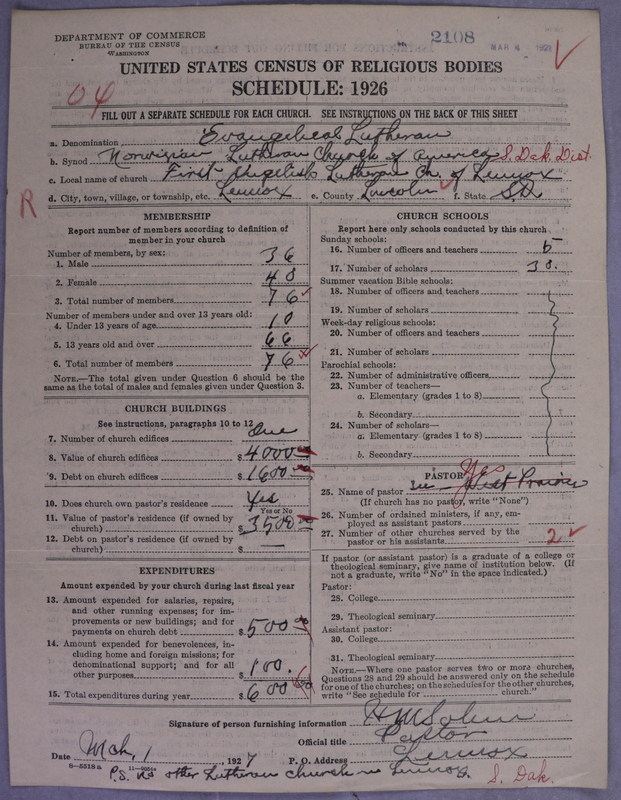 DEPARTMENT OF COMMERCE
BUREAU OF THE CENSUS
WASHINGTON
2108
MAR 4 1927
UNITED STATES CENSUS OF RELIGIOUS BODIES
SCHEDULE: 1926
04
FILL OUT A SEPARATE SCHEDULE FOR EACH CHURCH. SEE INSTRUCTIONS ON THE BACK OF THIS SHEET
a. Denomination Evangelical Lutheran
b. Synod Norwegian Lutheran Church of America S. Dak. Dist.
c. Local name of church First English Lutheran Ch. of Lennox
d. City, town, village, or township, etc. Lennox e. County Lincoln f. State S.D.
R
MEMBERSHIP
Report number of members according to definition of
member in your church
Number of members, by sex:
1. Male 36
2. Female 40
3. Total number of members 76
Number of members under and over 13 years old:
4. Under 13 years of age 10
5. 13 years old and over 66
6. Total number of members 76
NOTE.—The total given under Question 6 should be the
same as the total of males and females given under Question 3.
CHURCH BUILDINGS
See instructions, paragraphs 10 to 12
7. Number of church edifices One
8. Value of church edifices $ 4000
9. Debt on church edifices $ 1600
10. Does church own pastor's residence Yes
Yes or No
11. Value of pastor's residence (if owned by
church) $ 3500
12. Debt on pastor's residence (if owned by
church) $ —
EXPENDITURES
Amount expended by your church during last fiscal year
13. Amount expended for salaries, repairs,
and other running expenses; for im-
provements or new buildings; and for
payments on church debt $ 500
14. Amount expended for benevolences, in-
cluding home and foreign missions; for
denominational support; and for all
other purposes $ 100.
15. Total expenditures during year $ 600
CHURCH SCHOOLS
Report here only schools conducted by this church
Sunday schools:
16. Number of officers and teachers 5
17. Number of scholars 38.
Summer vacation Bible schools:
18. Number of officers and teachers
19. Number of scholars
Week-day religious schools:
20. Number of officers and teachers
21. Number of scholars
Parochial schools:
22. Number of administrative officers
23. Number of teachers—
a. Elementary (grades 1 to 8)
b. Secondary
24. Number of scholars—
a. Elementary (grades 1 to 8)
b. Secondary
PASTOR Yes
25. Name of pastor see West Prairie
(If church has no pastor, write "None")
26. Number of ordained ministers, if any, em-
ployed as assistant pastors
27. Number of other churches served by the
pastor or his assistants 2
If pastor (or assistant pastor) is a graduate of a college or
theological seminary, give name of institution below. (If
not a graduate, write "No" in the space indicated.)
Pastor:
28. College
29. Theological seminary
Assistant pastor:
30. College
31. Theological seminary
NOTE.—Where one pastor serves two or more churches,
Questions 28 and 29 should be answered only on the schedule
for one of the churches; on the schedules for the other churches,
write "See schedule for church."
Signature of person furnishing information
Official title Pastor
Date Mch, 1, 1927 P. O. Address Lennox
8-5518a
P.S. no other Lutheran church in Lennox. S. Dak.